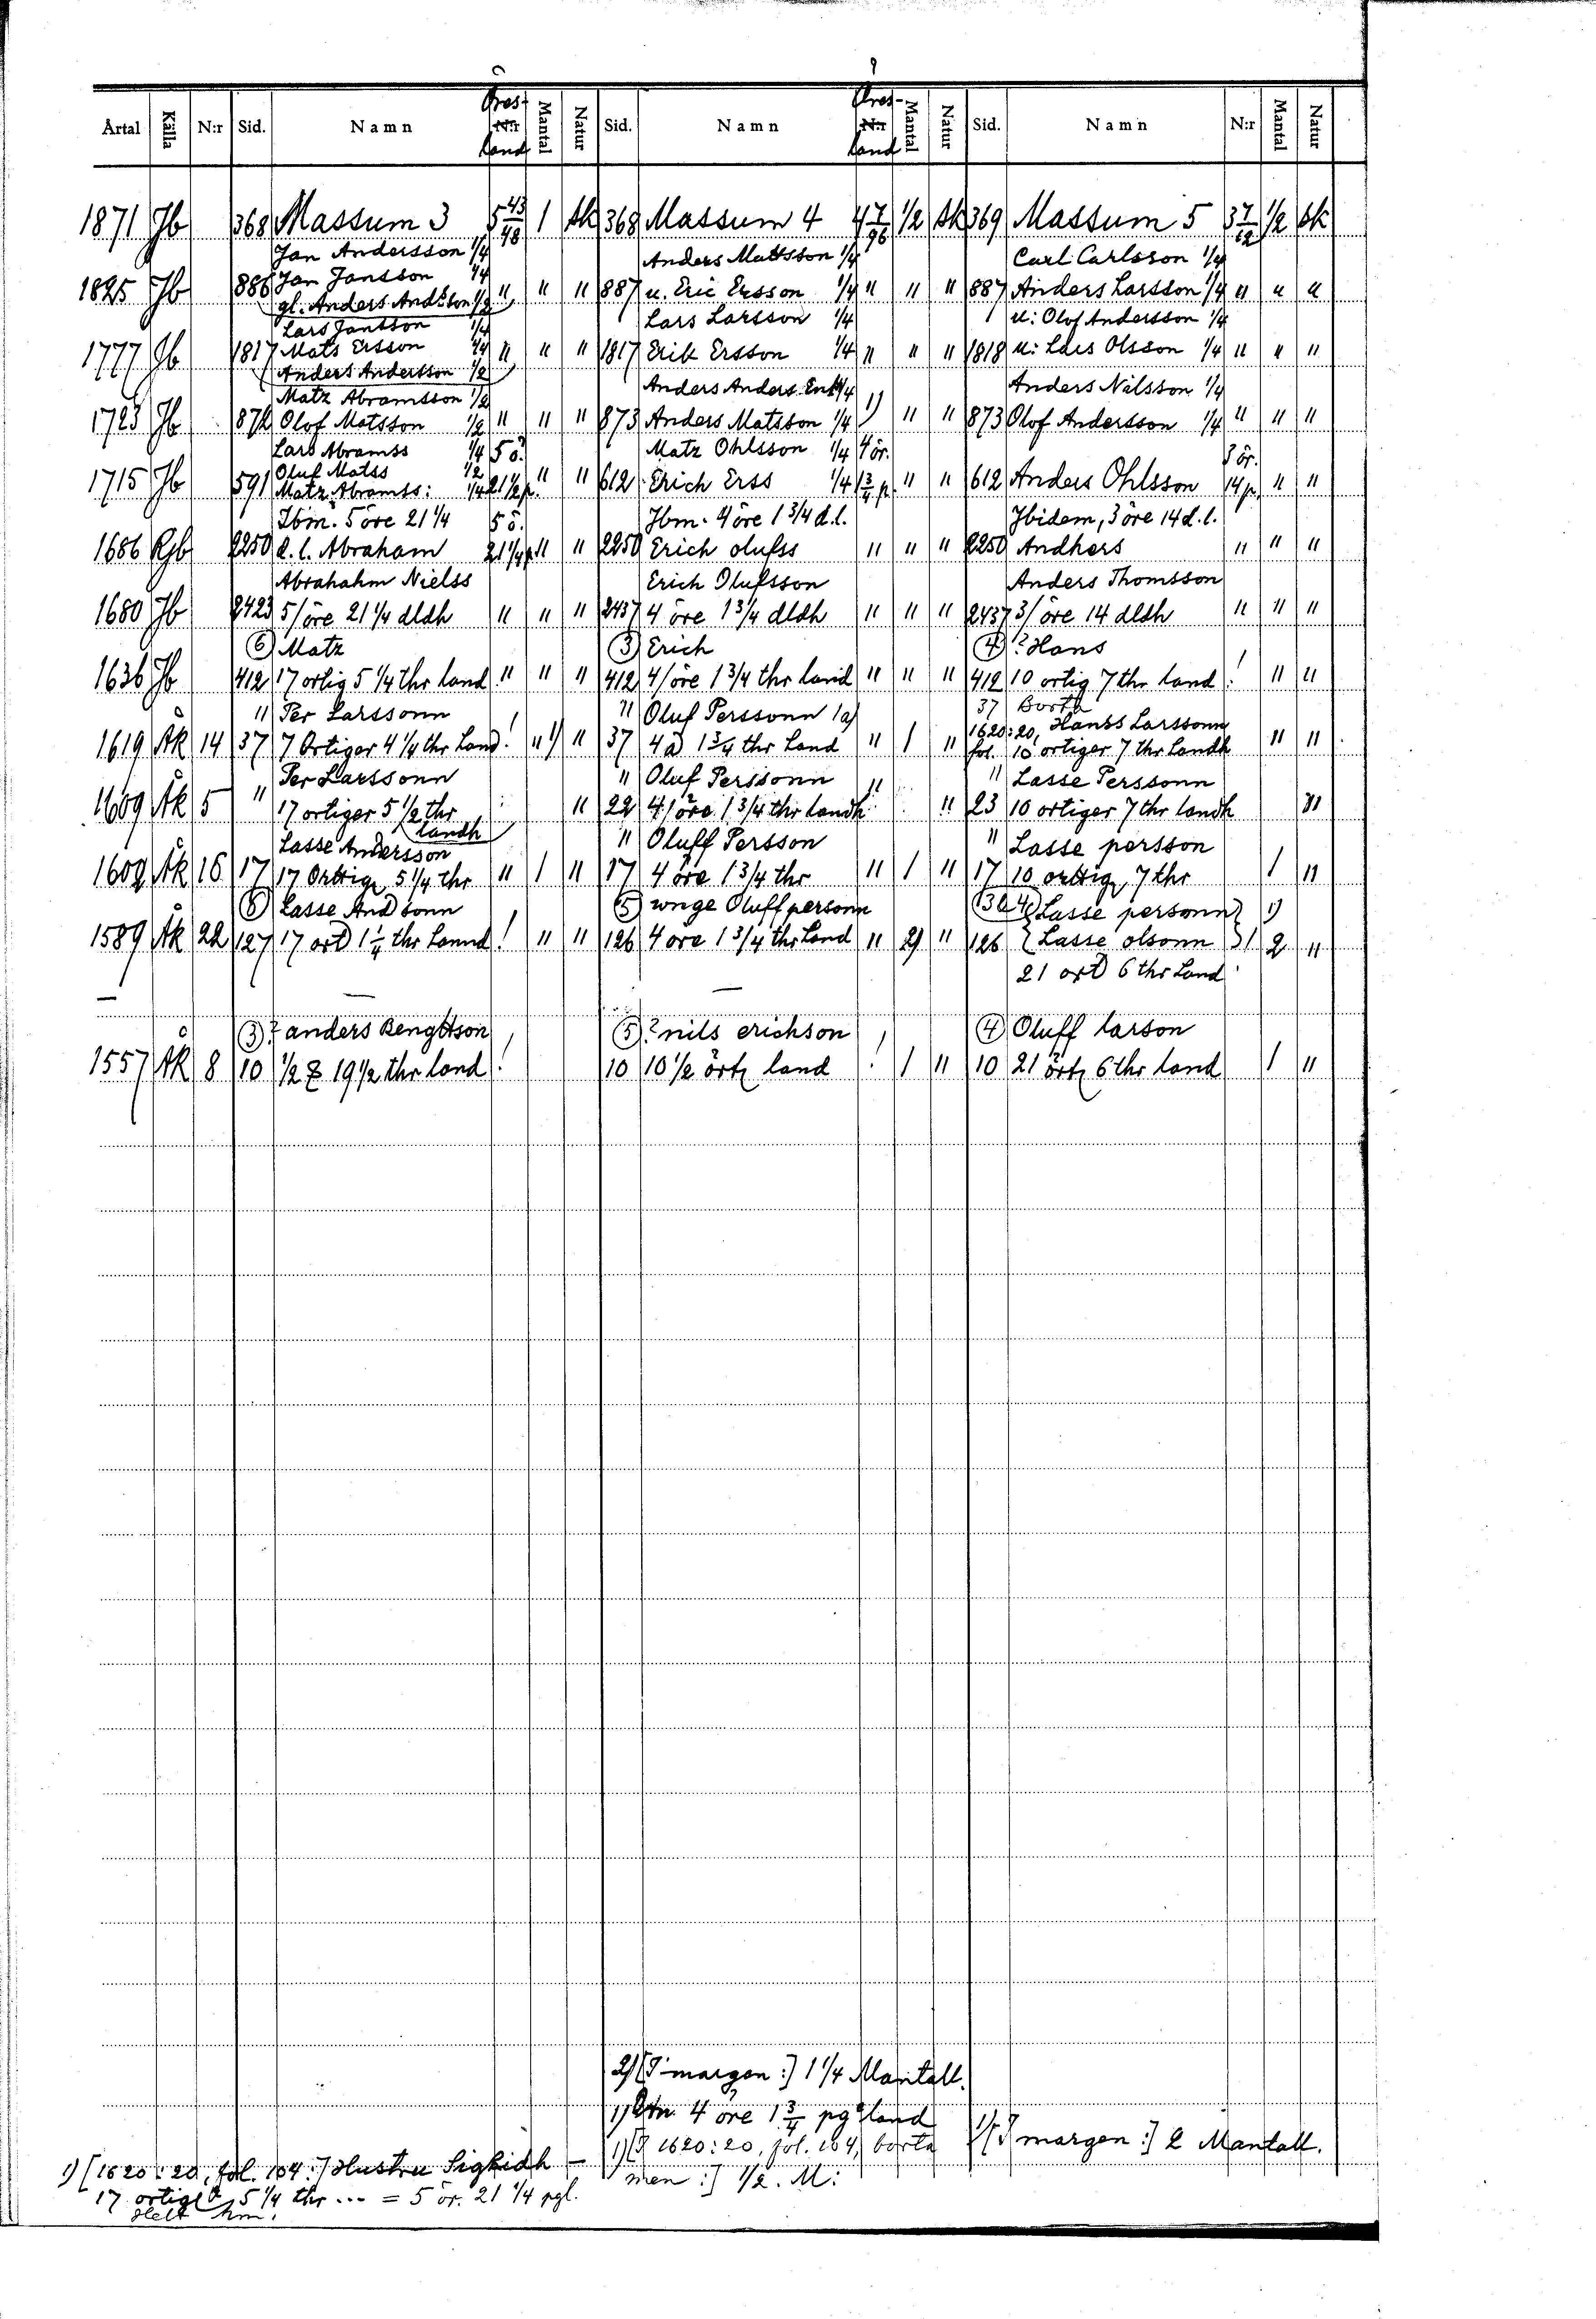 Årtal Källa N:r Sid. Namn N:r land Mantal Natur Sid. Namn N:r land Mantal Natur Sid. Namn N:r Mantal Natur
1871 Jb 368 Massum 3 5 43/48 1 sk 368 Massum 4 4 7/96 1/2 sk 369 Massum 5 3 7/12 1/2 sk
Jan Andersson 1/4 Anders Mattsson 1/4 Carl Carlsson 1/4
1825 Jb 886 Jan Jansson 1/4 " " " 887 u. Eric Ersson 1/4 " " " 887 Anders Larsson 1/4 " " "
gl. Anders Andsson 1/2
Lars Jansson 1/4 Lars Larsson 1/4 u: Olof Andersson 1/4
1777 Jb 1817 Mats Ersson 1/4 " " " 1817 Erik Ersson 1/4 " " " 1818 u: Lars Olsson 1/4 " " "
Anders Andersson 1/2
Matz Abramsson 1/2 Anders Anders. Enk 1/4 Anders Nilsson 1/4
1725 Jb 872 Olof Matsson 1/2 " " " 873 Anders Matsson 1/4 1) " " 873 Olof Andersson 1/4 " " "
Lars Abramss 1/4 5 ö. Matz Ohlsson 1/4 4 ör. 3 ör.
Oluf Matss 1/2
1715 Jb 591 Matz Abramss: 1/4 21 1/2 p. " " 612 Erich Erss 1/4 1 3/4 p. " " 612 Anders Ohlsson 14 p. " "
Ibm. 5 öre 21 1/4 5 ö. Jbm. 4 öre 1 3/4 d.l. Jbidem, 3 öre 14 d.l.
1686 Rjb 2250 d.l. Abraham 21 1/4 p " " 2250 Erich olufss " " " 2250 Andhers " " "
Abrahahm Nielss Erich Olufsson Anders Thomsson
1680 Jb 2423 5/öre 21 1/4 dldh " " " 2437 4 öre 1 3/4 dldh " " " 2437 3/öre 14 dldh " " "
(6) Matz (3) Erich (4)? Hans
1636 Jb 412 17 ortig 5 1/4 thr land " " " 412 4/öre 1 3/4 thr land " " " 412 10 ortig 7 thr land ! " "
" Per Larssonn " Oluf Perssonn 1a) 37 Borth
1620:20, Hanss Larssonn
1619 Åk 14 37 7 Ortiger 4 1/4 thr Land ! " 1) " 37 4 ö 1 3/4 thr Land " 1 " fol. 10 ortiger 7 thr Landh " "
Per Larssonn " Oluf Perssonn " Lasse Perssonn
1609 Åk 5 " 17 ortiger 5 1/2 thr landh " 22 4/öre 1 3/4 thr landh " " 23 10 ortiger 7 thr landh "
Lasse Andersson " Oluff Persson " Lasse persson
1609 Åk 16 17 17 Orttige 5 1/4 thr " 1 " 17 4 öre 1 3/4 thr " 1 " 17 10 orttige 7 thr 1 "
(6) Lasse And sonn (5) wnge Oluff personn (3 o 4) Lasse personn 1)
1589 Åk 22 127 17 ort 1 1/4 thr Lannd ! " " 126 4 öre 1 3/4 thr Land " 2) " 126 Lasse olsonn 2 "
21 ort 6 thr Land
— — —
(3)? anders Bengttson (5)? nils erichson (4) Oluff larson
1557 Åk 8 10 1/2 19 1/2 thr land ! 10 10 1/2 örtz land ! 1 " 10 21 örtz 6 thr land 1 "
2) [J margen :] 1 1/4 Mantall.
1) 4 öre 1 3/4 pg land
1) [J 1620:20, fol. 104, borta 1) [J margen :] 2 Mantall.
men :] 1/2. M:
1) [1620:20, fol. 104:] Hustru Sigridh —
17 ortige 5 1/4 thr ... = 5 ör. 21 1/4 pgl.
Helt hm.